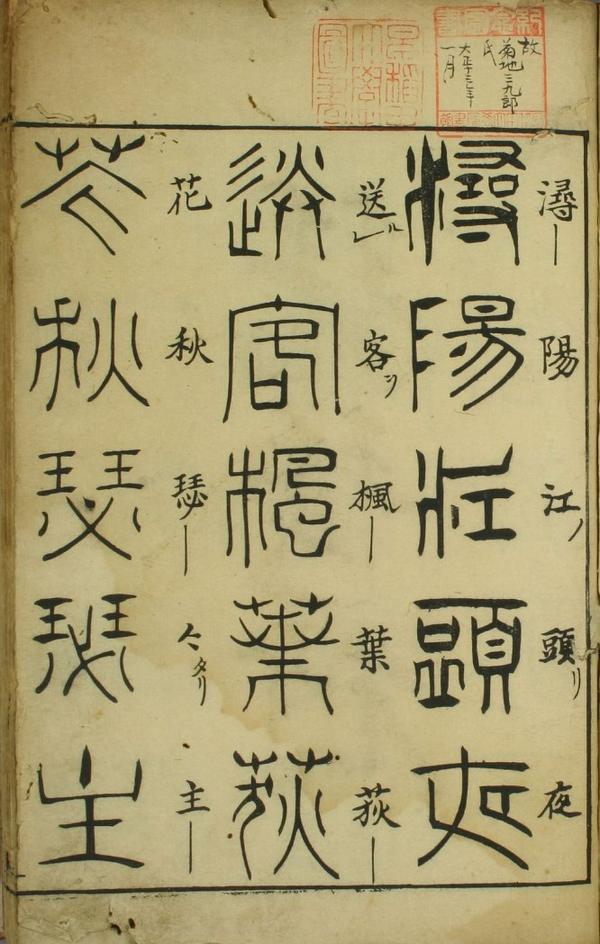 故
菊地三九郎
氏
大正十三年
一月
潯｜陽江ノ頭リ夜
潯陽江頭夜
送ルレ客ヲ楓｜葉荻｜
送客楓葉荻
花秋瑟｜〻タリ主｜
花秋瑟瑟主